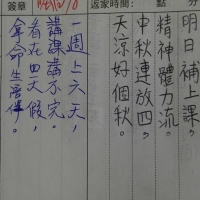 簽章
返家時間: 點 分
明日補上課,
精神體力流。
中秋連放四,
天涼好個秋。
一週上六天,
講課講不完。
看在四天假,
拿命生磨停。